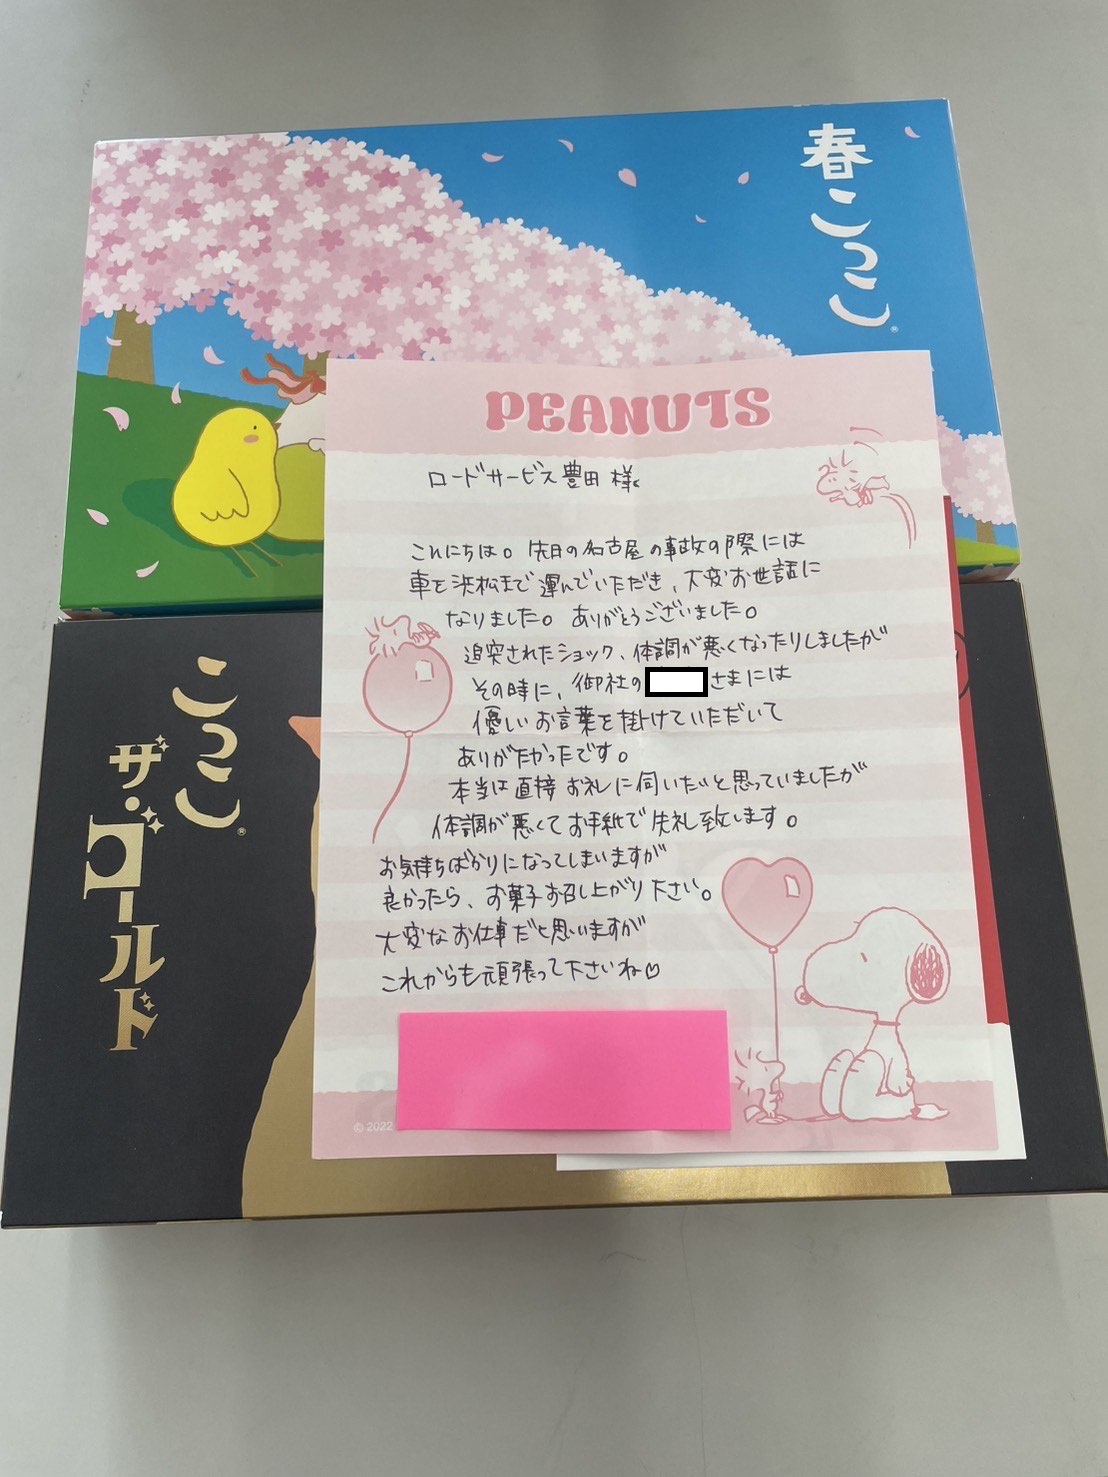 春こっこ®
PEANUTS
ロードサービス豊田 様
こんにちは。先日の名古屋の事故の際には
車を浜松まで運んでいただき、大変お世話に
なりました。ありがとうございました。
追突されたショック、体調が悪くなったりしましたが
その時に、御社の さまには
優しいお言葉を掛けていただいて
ありがたかったです。
本当は直接お礼に伺いたいと思っていましたが
体調が悪くてお手紙で失礼致します。
お気持ちばかりになってしまいますが
良かったら、お菓子お召し上がり下さい。
大変なお仕事だと思いますが
これからも頑張って下さいね♡
© 2022
こっこ®
ザ・ゴールド